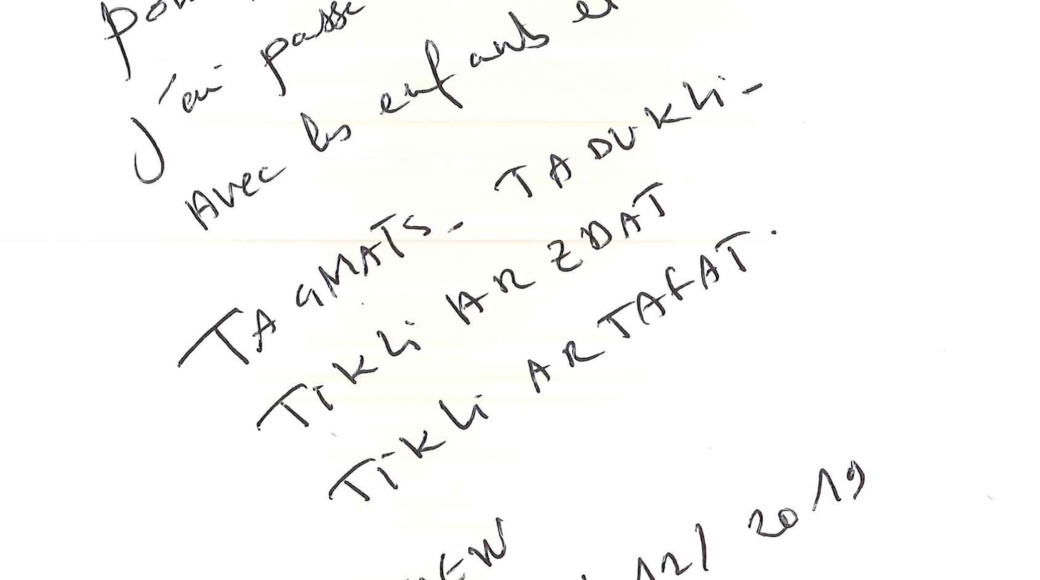 J'ai passé
Avec les enfants et
TAGMATS - TADUKLI -
TIKLI AR ZDAT
TIKLI AR TAFAT.
12/2019